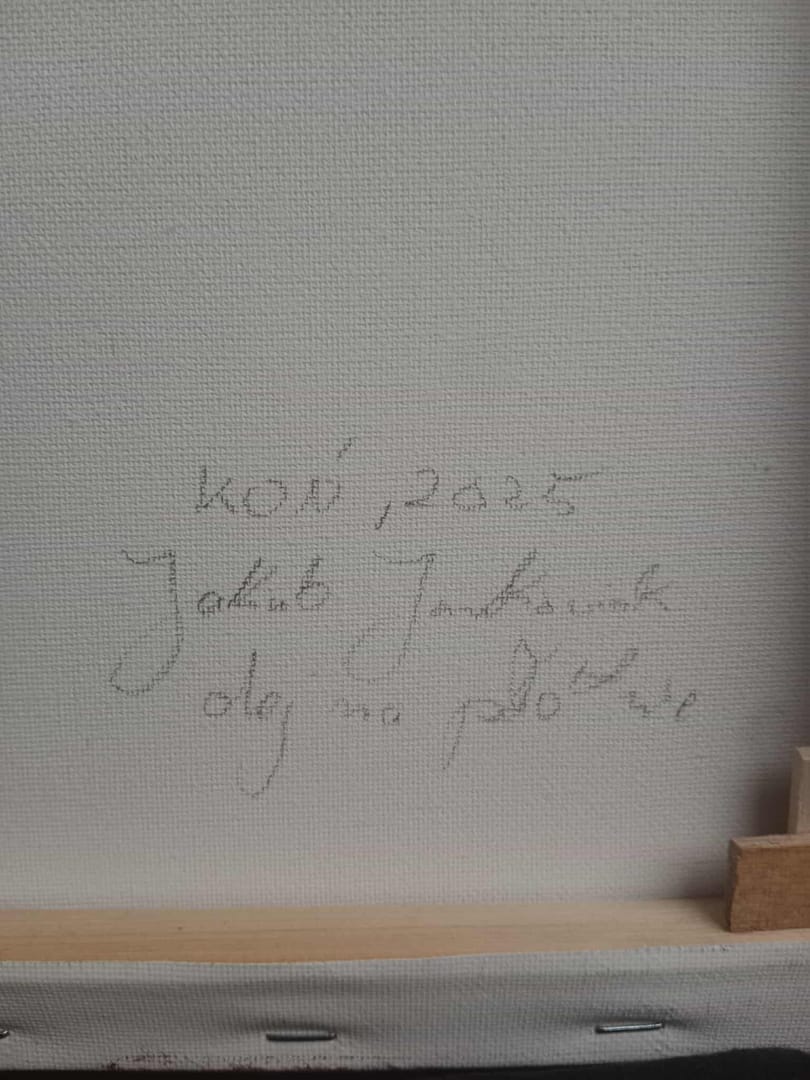 KOŃ, 2025
Jakub Jankowiak
olej na płótnie